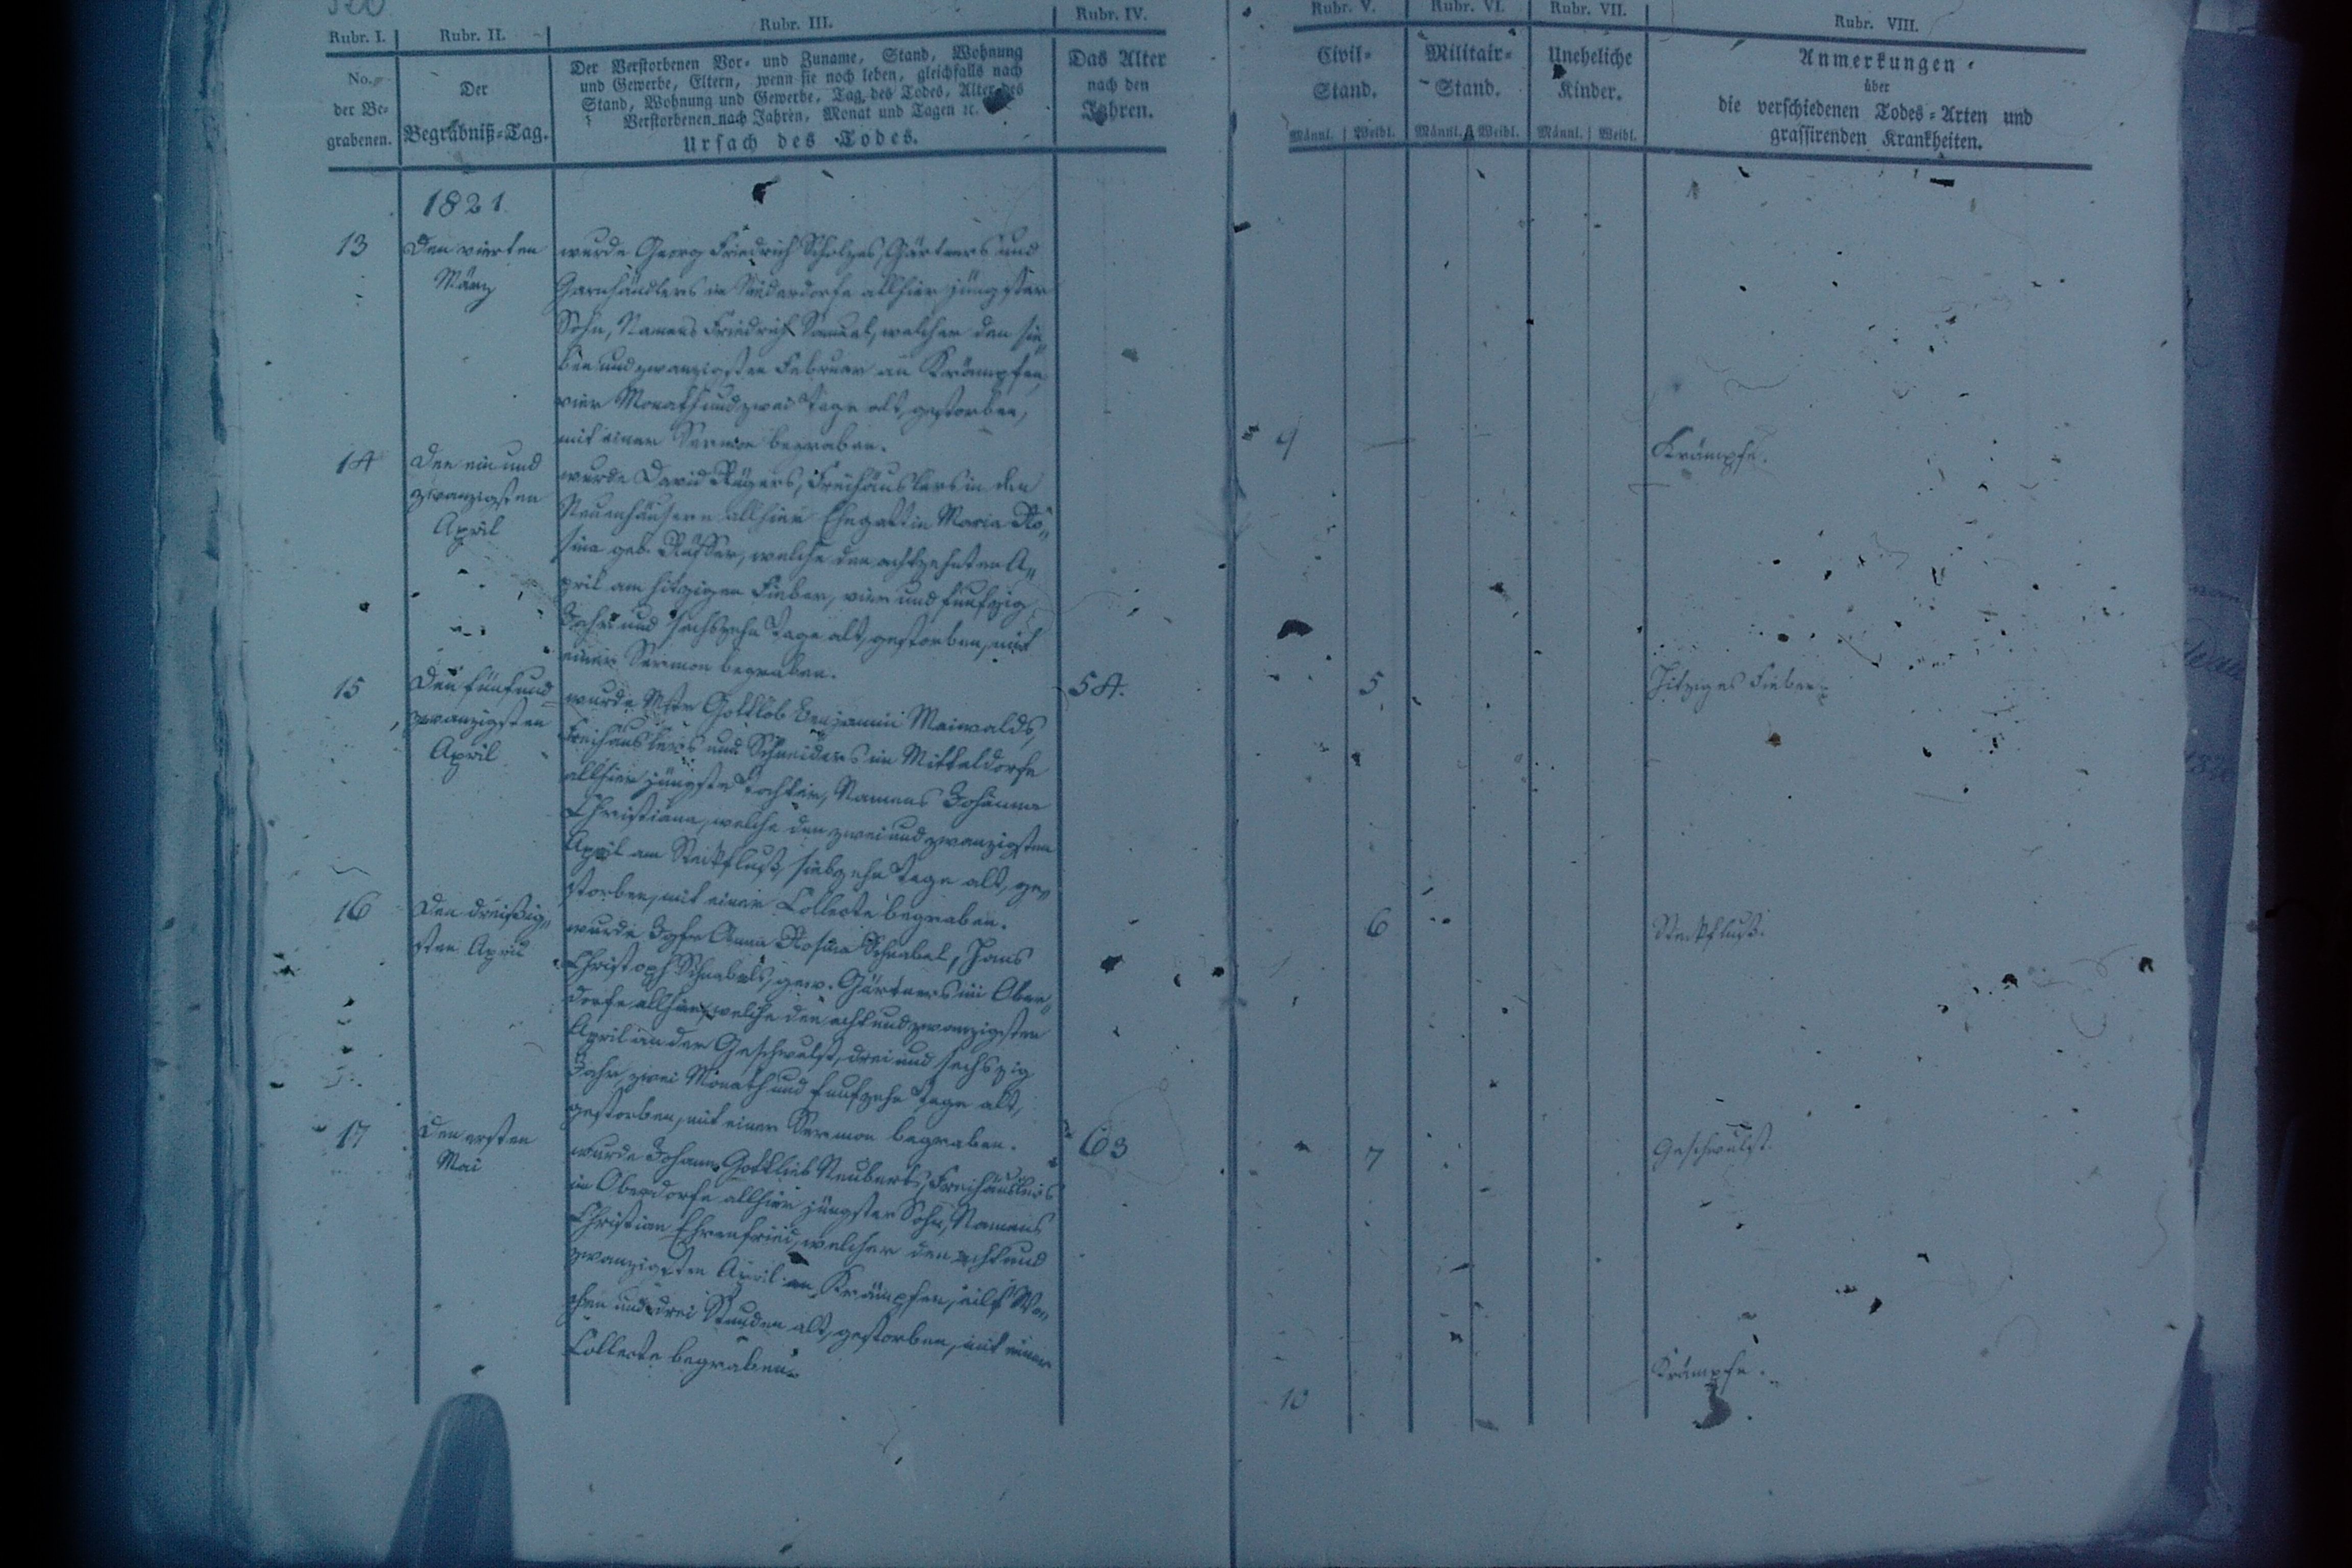 Rubr. I.
No.
der Be-
grabenen.
Rubr. II.
Der
Begräbniß-Tag.
Rubr. III.
Der Verstorbenen Vor- und Zuname, Stand, Wohnung
und Gewerbe, Eltern, wenn sie noch leben, gleichfalls nach
Stand, Wohnung und Gewerbe, Tag des Todes, Alter des
Verstorbenen nach Jahren, Monat und Tagen ꝛc.
Ursach des Todes.
Rubr. IV.
Das Alter
nach den
Jahren.
Rubr. V.
Civil-
Stand.
Männl. | Weibl.
Rubr. VI.
Militair-
Stand.
Männl. Weibl.
Rubr. VII.
Uneheliche
Kinder.
Männl. | Weibl.
Rubr. VIII.
Anmerkungen
über
die verschiedenen Todes-Arten und
grassirenden Krankheiten.
1821.
13
Den vierten
März
wurde Georg Friedrich Scholzes, Gärtners und
Garnhändlers im Niederdorfe allhier jüngster
Sohn, Namens Friedrich Samuel, welcher den sie„
ben und zwanzigsten Februar an Krämpfen,
vier Monath und zwei Tage alt, gestorben,
mit einer Sermon begraben.
9
Krämpfe.
14
Den ein und
zwanzigsten
April
wurde David Rügers, Freihäuslers in den
Neuenhäusern allhier Ehegattin Maria Ro„
sina geb. welche den achtzehnten A„
pril am hitzigen Fieber, vier und funfzig
Jahr und sechszehn Tage alt, gestorben, mit
einer Sermon begraben.
54.
5
Hitziges Fieber.
15
Den fünf und
zwanzigsten
April
wurde Mstr Gottlob Benjamin Maiwalds,
Freihäuslers und Schneiders im Mitteldorfe
allhier jüngste Tochter, Namens Johanna
Christiana, welche den zwei und zwanzigsten
April am Steckfluß, siebzehn Tage alt, ge„
storben, mit einer Collecte begraben.
6
Steckfluß.
16
Den dreißig„
sten April
wurde Jgfr Anna Rosina Schnabel, Hans
Christoph Schnabels, gew. Gärtners im Ober„
dorfe allhier, welche den acht und zwanzigsten
April an der Geschwulst, drei und sechszig
Jahr, zwei Monath und funfzehn Tage alt,
gestorben, mit einer Sermon begraben.
63
7
Geschwulst.
17
Den ersten
Mai
wurde Johann Gottlieb Neuberts, Freihäuslers
im Oberdorfe allhier jüngster Sohn, Namens
Christian Ehrenfried, welcher den acht und
zwanzigsten April an Krämpfen, eilf Wo„
chen und drei Stunden alt, gestorben, mit einer
Collecte begraben.
10
Krämpfe.